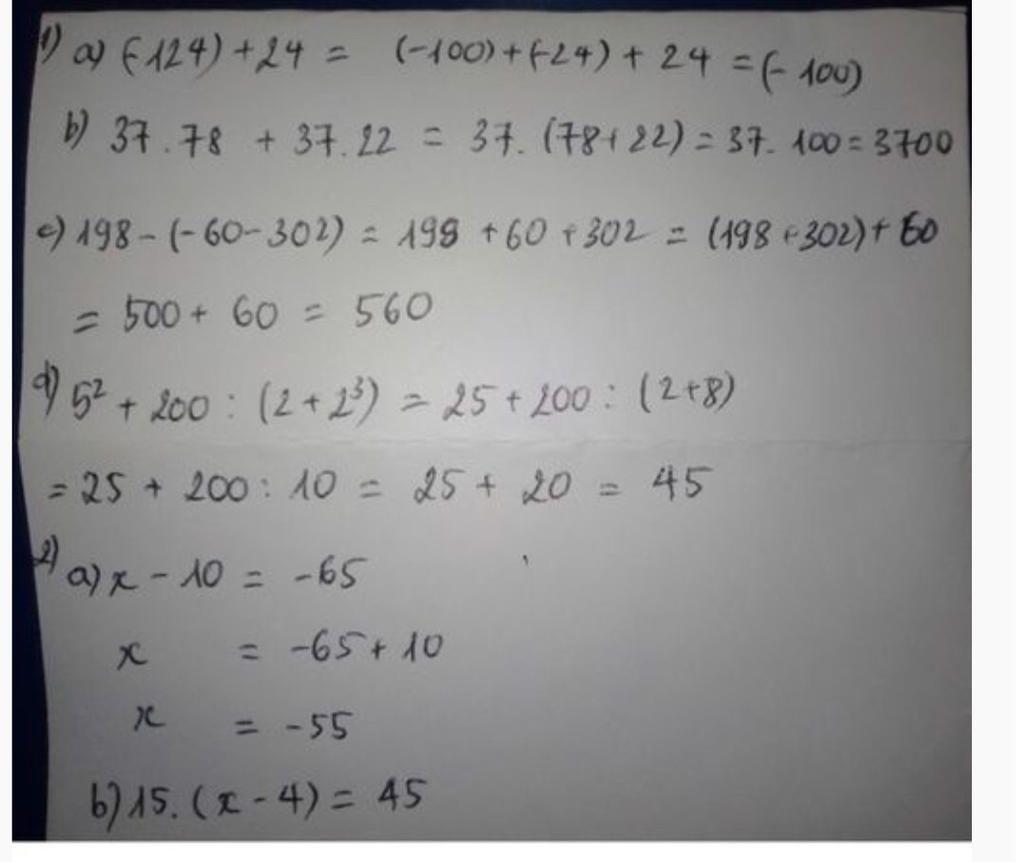 1) a) (-124) + 24 = (-100) + (-24) + 24 = (-100)
b) 37.78 + 37.22 = 37. (78+22) = 37. 100 = 3700
c) 198 - (-60-302) = 198 + 60 + 302 = (198 + 302) + 60
= 500 + 60 = 560
d) 5² + 200 : (2 + 2³) = 25 + 200 : (2+8)
= 25 + 200 : 10 = 25 + 20 = 45
2) a) x - 10 = -65
x = -65 + 10
x = -55
b) 15. (x - 4) = 45